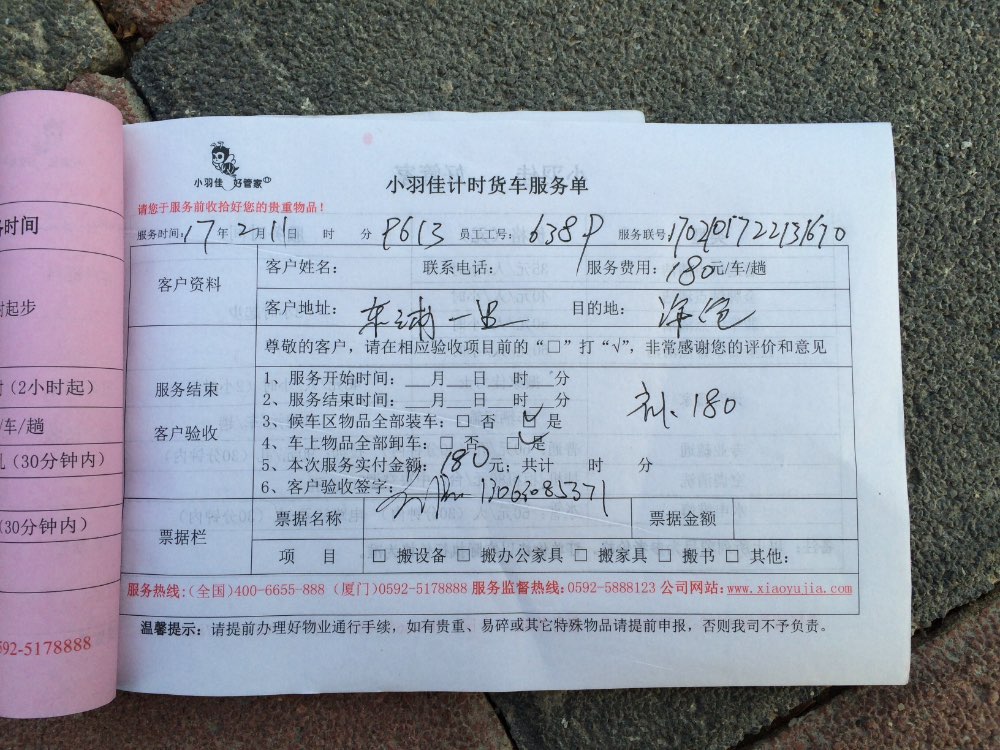 小羽佳 好管家
小羽佳计时货车服务单
请您于服务前收拾好您的贵重物品！
服务时间: 17年2月11日 时 分 P613 员工工号: 638P 服务联号:
客户资料
客户姓名: 联系电话: 服务费用: 180元/车/趟
客户地址: 东浦一里 目的地:
尊敬的客户，请在相应验收项目前的“□”打“√”，非常感谢您的评价和意见
服务结束
客户验收
1、服务开始时间：___月___日___时___分
2、服务结束时间：___月___日___时___分
3、候车区物品全部装车：□ 否 □ 是
4、车上物品全部卸车：□ 否 □ 是
5、本次服务实付金额：180元；共计 时 分
6、客户验收签字： 13063085371
180
票据栏
票据名称 票据金额
项 目 □ 搬设备 □ 搬办公家具 □ 搬家具 □ 搬书 □ 其他:
服务热线:(全国)400-6655-888 (厦门)0592-5178888 服务监督热线:0592-5888123 公司网站:www.xiaoyujia.com
温馨提示：请提前办理好物业通行手续，如有贵重、易碎或其它特殊物品请提前申报，否则我司不予负责。
时间
时起步
(2小时起)
/车/趟
(30分钟内)
(30分钟内)
592-5178888